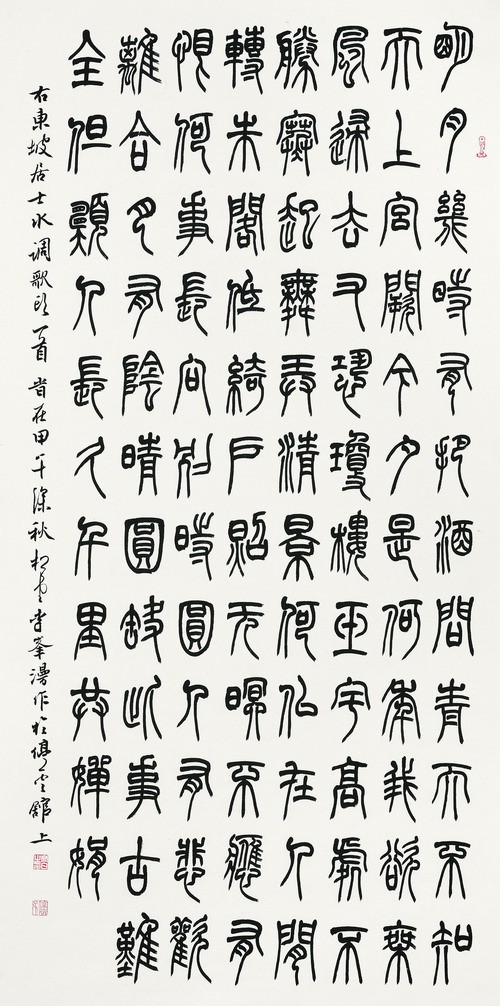 明月幾時有把酒問青天不知
天上宮闕今夕是何年我欲乘
風歸去又恐瓊樓玉宇高處不
勝寒起舞弄清景何似在人間
轉朱閣低綺戶照无眠不應有
恨何事長向別時圓人有悲歡
離合月有陰晴圓缺此事古難
全但願人長久千里共嬋娟
右東坡居士水调歌头一首旹在甲午深秋守峯漫作於雲館上